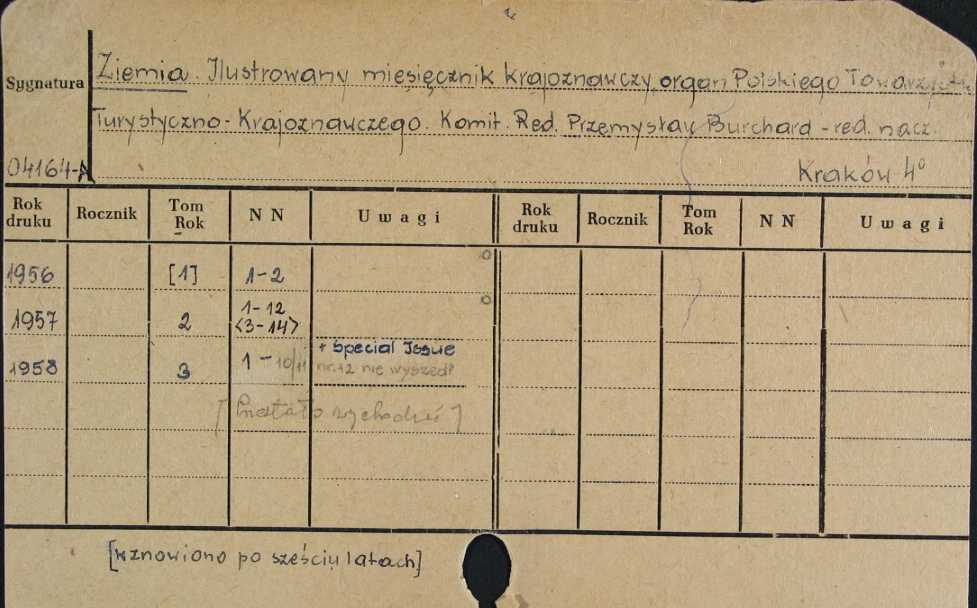 Sygnatura
Ziemia. Ilustrowany miesięcznik krajoznawczy, organ Polskiego
Turystyczno-Krajoznawczego. Komit. Red. Przemysław Burchard - red. nacz.
04164-A
Kraków 4°
Rok druku Rocznik Tom Rok NN Uwagi Rok druku Rocznik Tom Rok NN Uwagi
1956 [1] 1-2
1957 2 1-12
<3-14>
1958 3 1-10/11 + Special Issue
nr. 12 nie wyszedł
[Przestało wychodzić]
[wznowiono po sześciu latach]